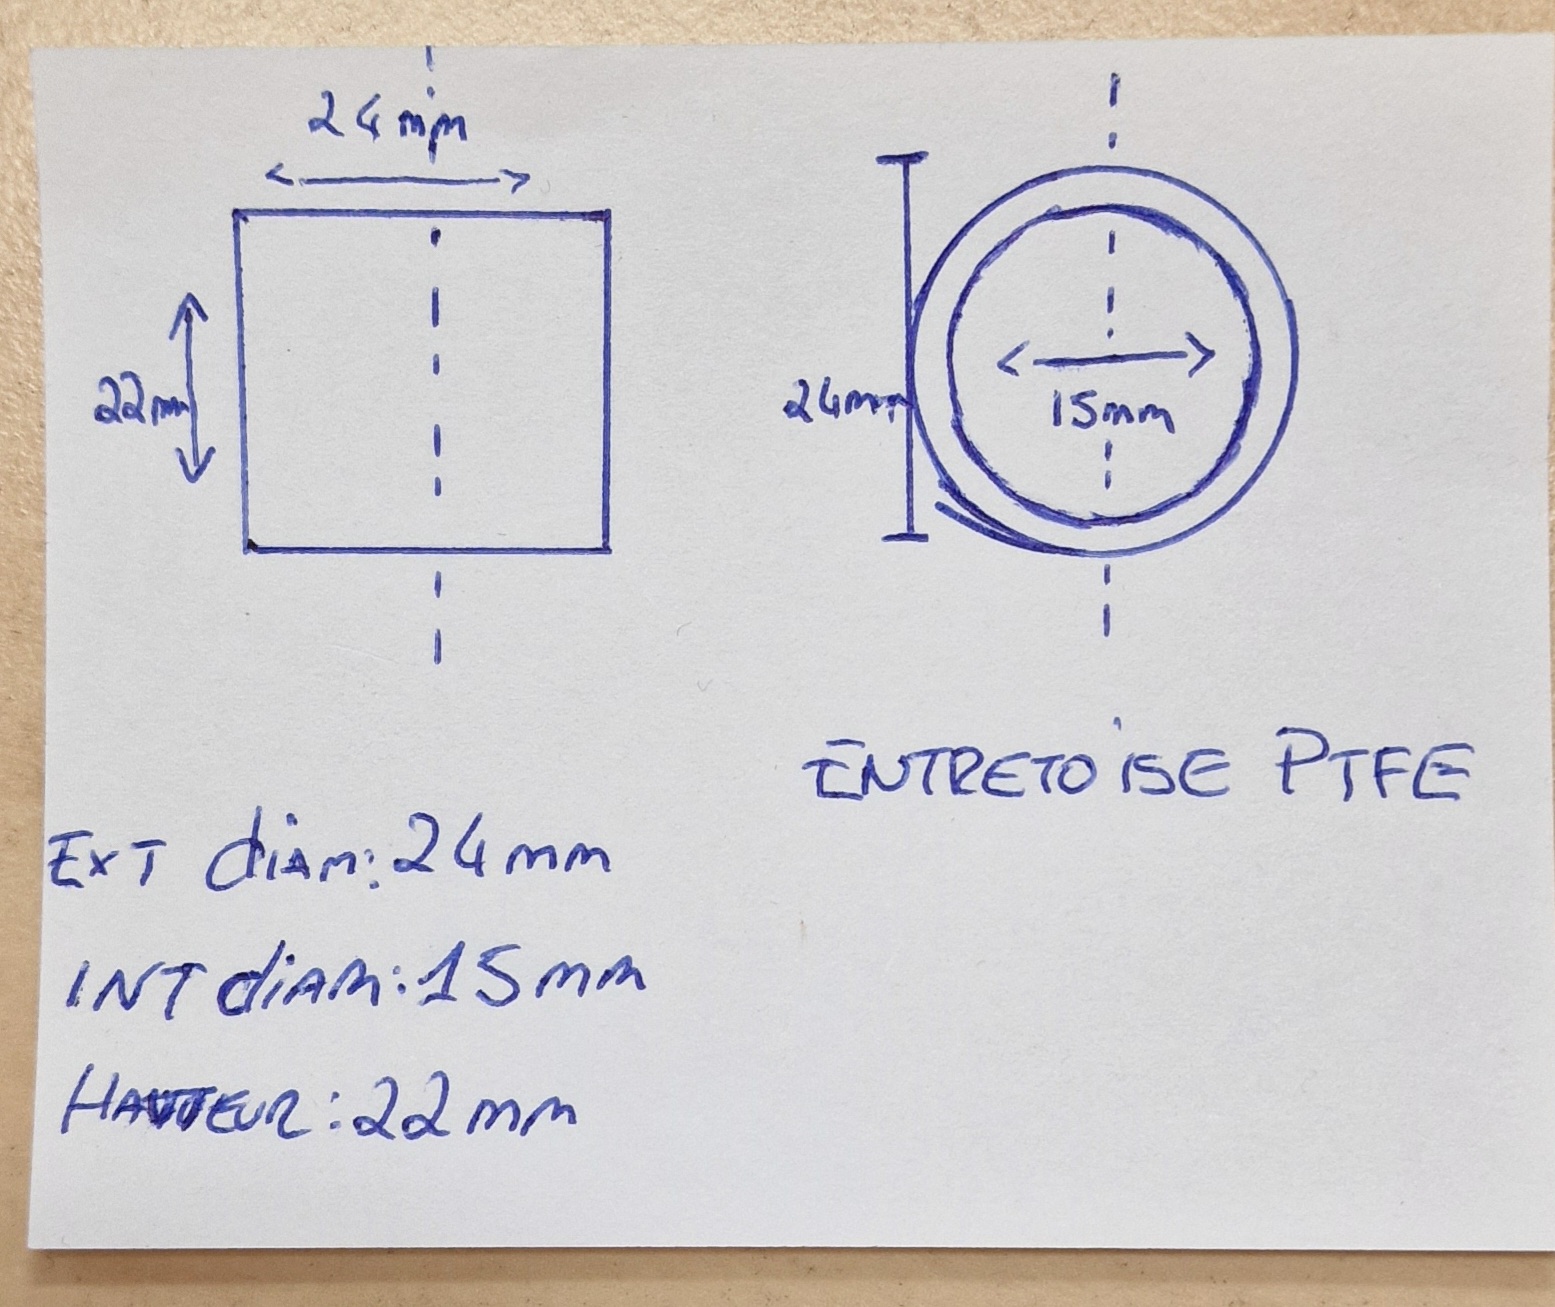 24mm
22mm
24mm
15mm
ENTRETOISE PTFE
EXT diam: 24mm
INT diam: 15mm
HAUTEUR: 22mm